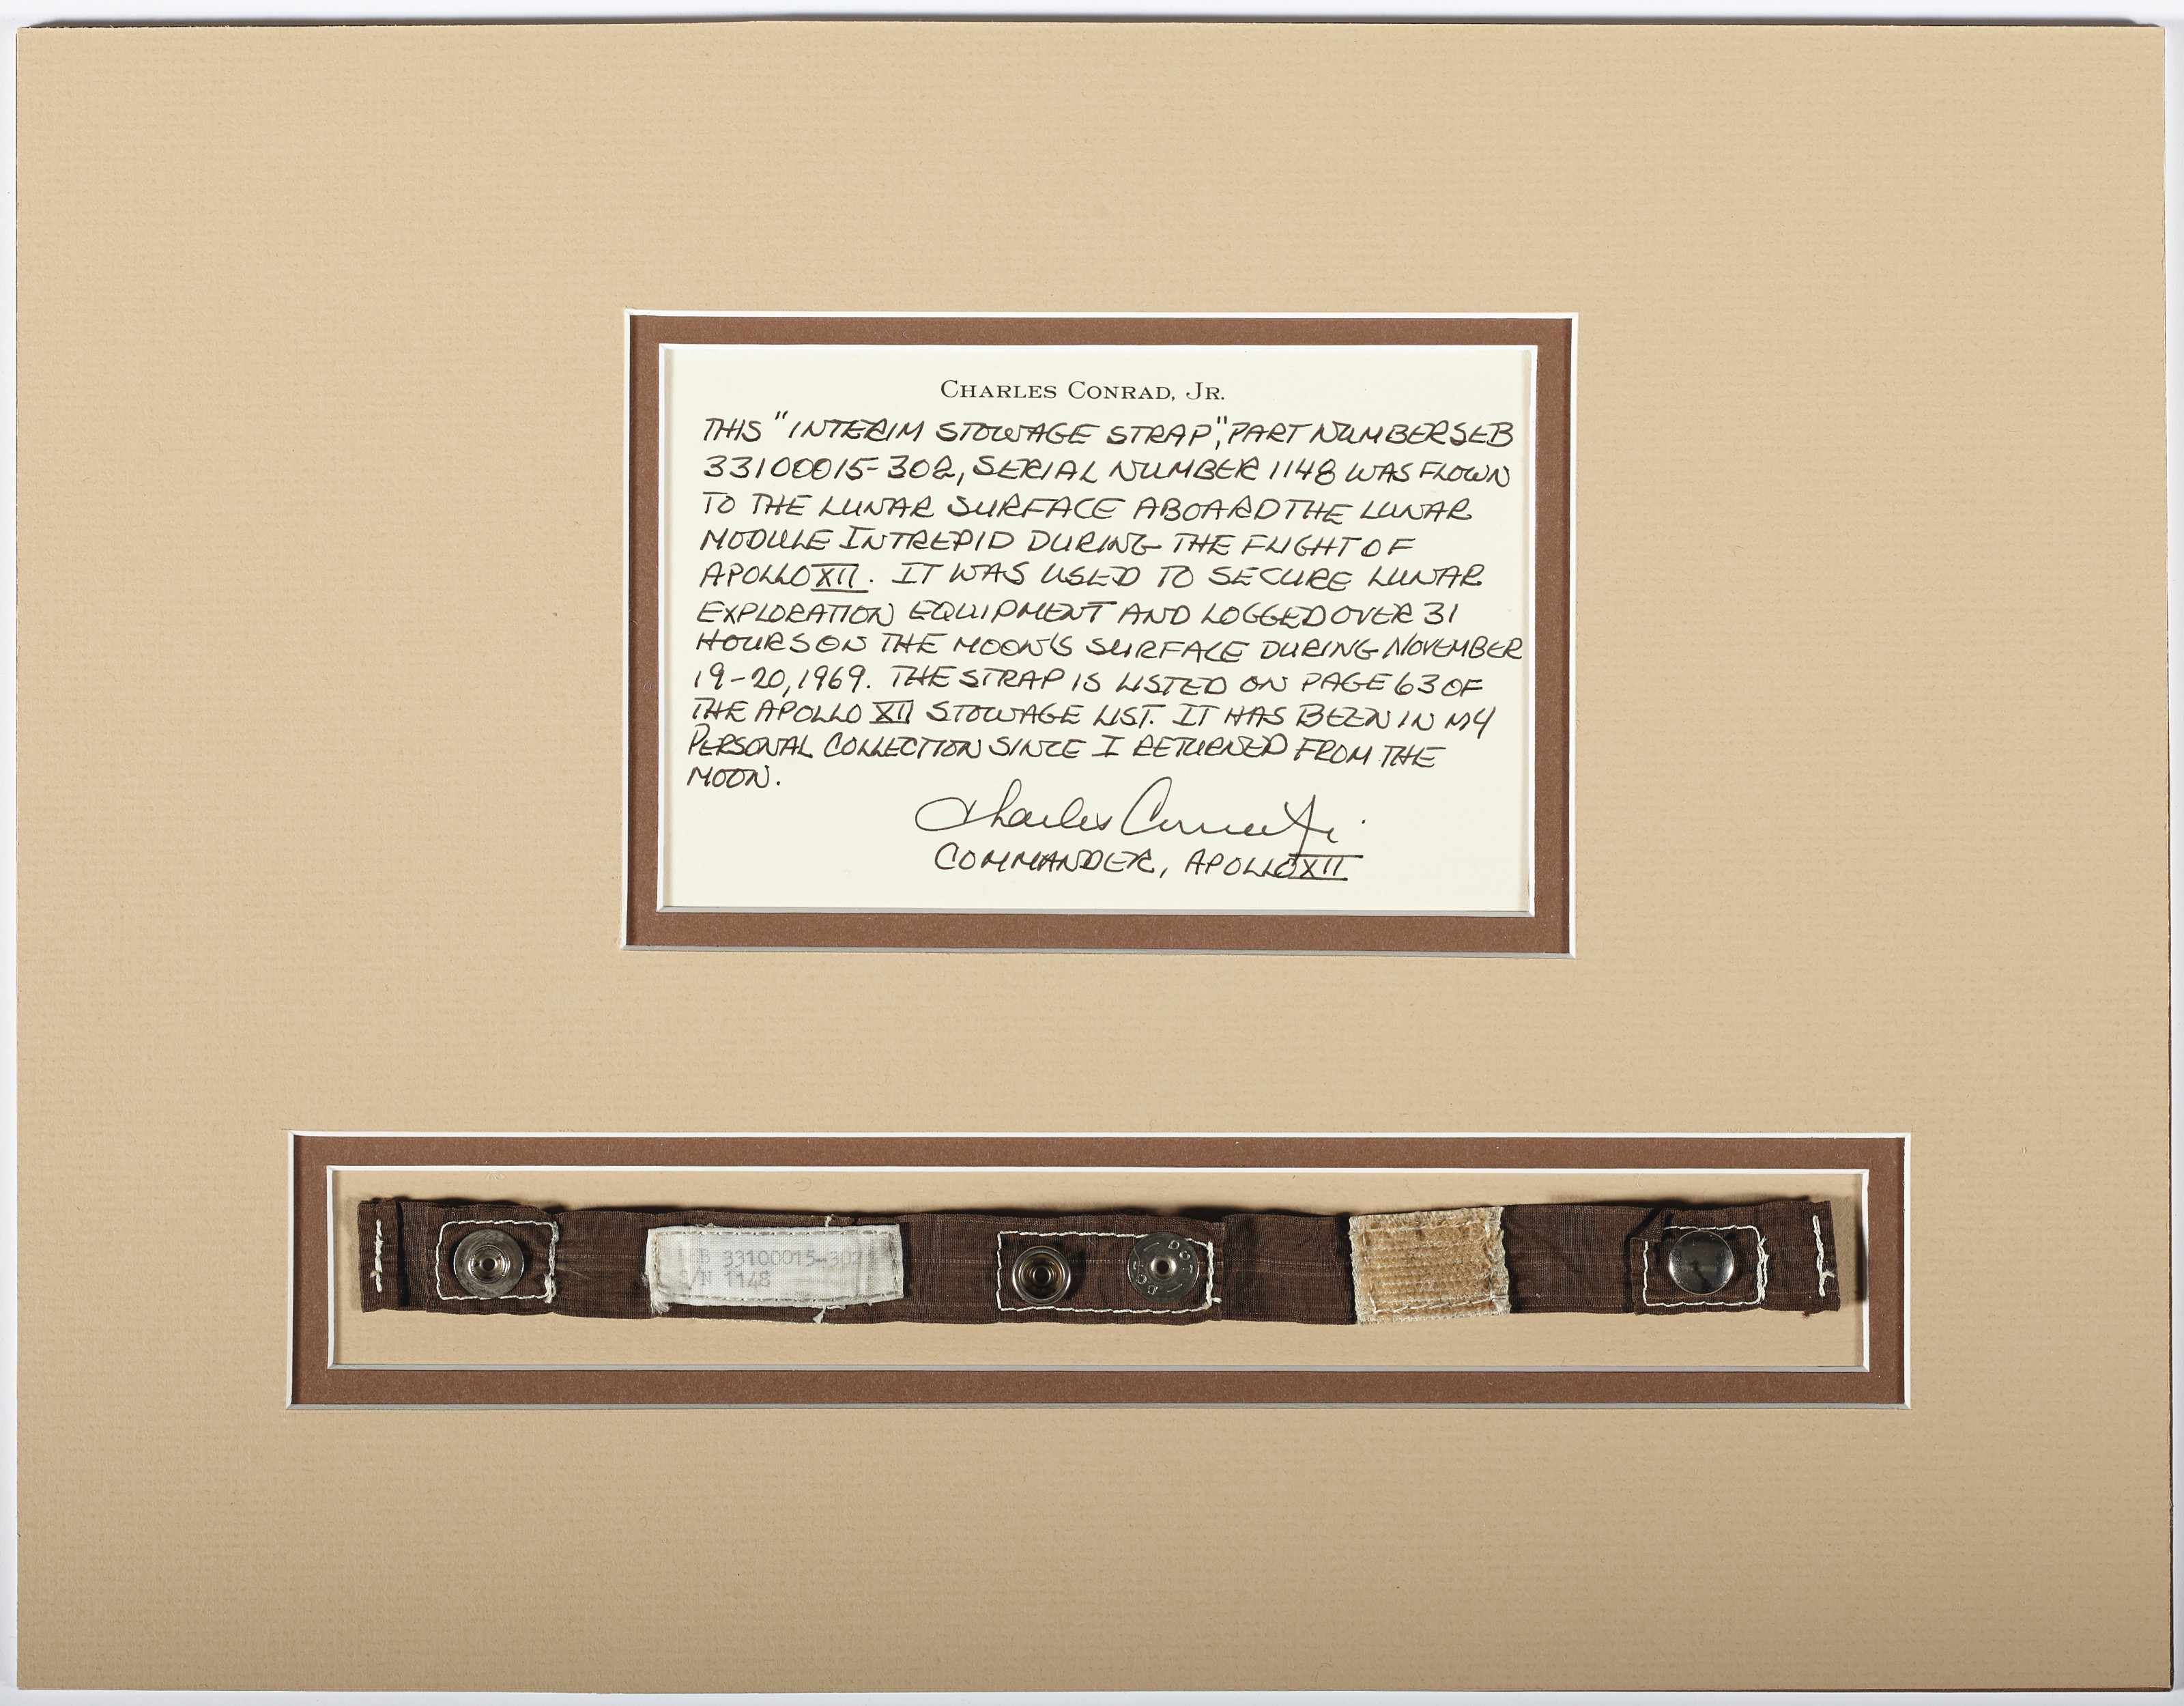 CHARLES CONRAD, JR.
THIS "INTERIM STOWAGE STRAP," PART NUMBER SEB
33100015-302, SERIAL NUMBER 1148 WAS FLOWN
TO THE LUNAR SURFACE ABOARD THE LUNAR
MODULE INTREPID DURING THE FLIGHT OF
APOLLO XII. IT WAS USED TO SECURE LUNAR
EXPLORATION EQUIPMENT AND LOGGED OVER 31
HOURS ON THE MOON'S SURFACE DURING NOVEMBER
19-20, 1969. THE STRAP IS LISTED ON PAGE 63 OF
THE APOLLO XII STOWAGE LIST. IT HAS BEEN IN MY
PERSONAL COLLECTION SINCE I RETURNED FROM THE
MOON.
Charles Conrad Jr.
COMMANDER, APOLLO XII
B 33100015-302
S/N 1148